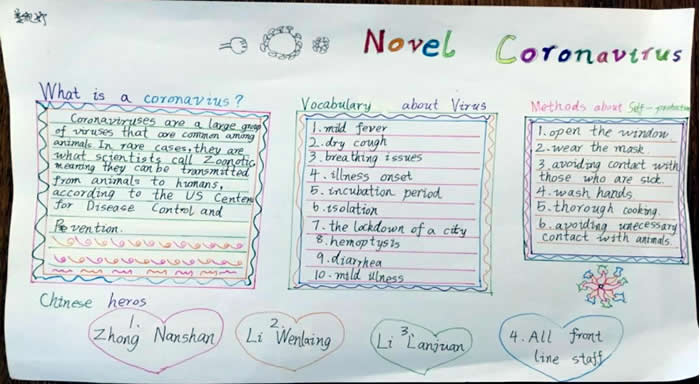 Novel Coronavirus
What is a coronavius?
Coronaviruses are a large group
of viruses that are common among
animals. In rare cases, they are
what scientists call Zoonotic,
meaning they can be transmitted
from animals to humans,
according to the US Centers
for Disease Control and
Prevention.
Vocabulary about Virus
1. mild fever
2. dry cough
3. breathing issues
4. illness onset
5. incubation period
6. isolation
7. the lockdown of a city
8. hemoptysis
9. diarrhea
10. mild illness
Methods about Self-protection
1. open the window
2. wear the mask
3. avoiding contact with
those who are sick.
4. wash hands
5. thorough cooking.
6. avoiding unecessary
contact with animals.
Chinese heros
1.
Zhong Nanshan
2.
Li Wenlaing
3
Li Lanjuan
4. All front
line staff